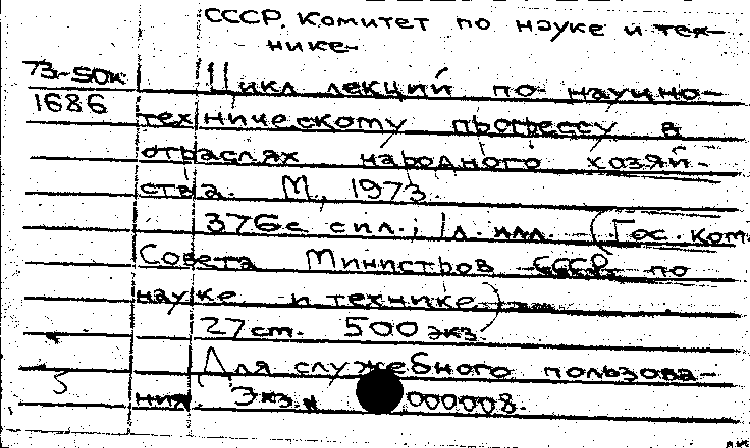 СССР. Комитет по науке и тех-
нике.
73-50к
Цикл лекций по научно-
1686
техническому прогрессу в
отраслях народного хозяй-
ства. М., 1973.
376с с ил.; 1 л. илл. - (Гос. ком.
Совета Министров СССР по
науке и технике)
27 ст. 500 экз.
Для служебного пользова-
5
ния. Экз. № 000008.